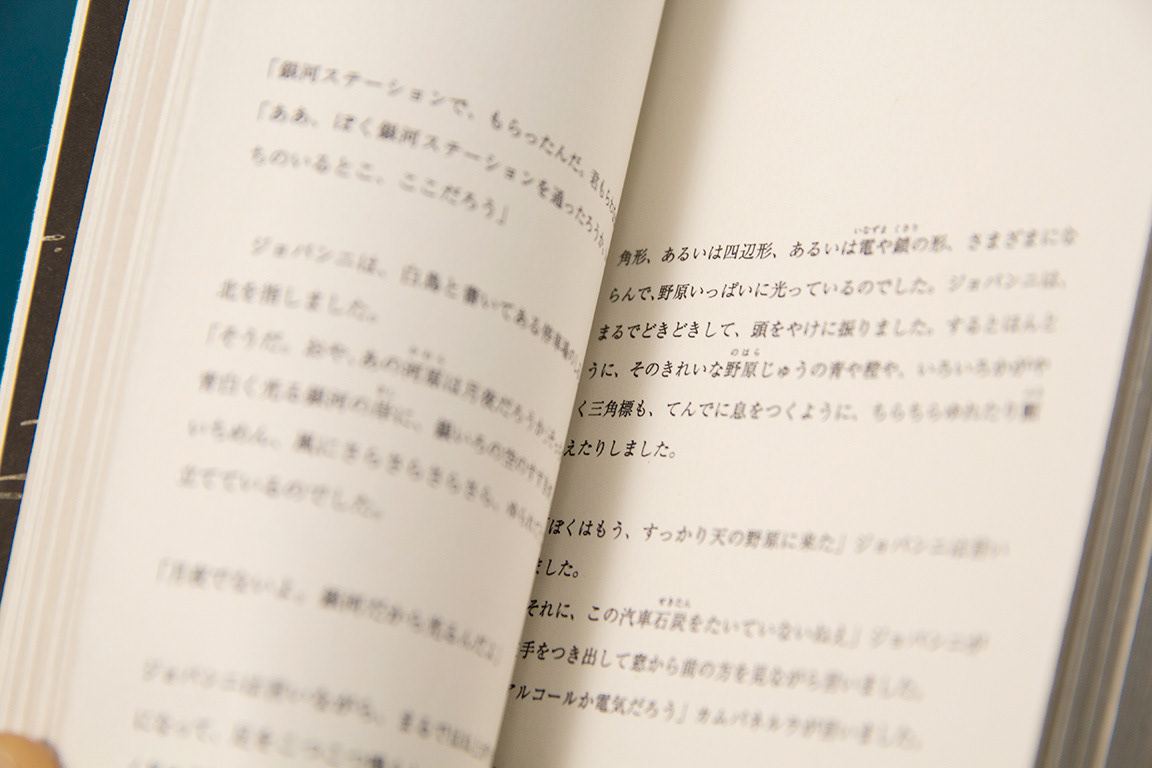 「銀河ステーションで、もらったんだ。君もらわな
「ああ、ぼく銀河ステーションを通ったろうか。
ちのいるとこ、ここだろう」
ジョバンニは、白鳥と書いてある停車場の
北を指しました。
「そうだ。おや、あの河原は月夜だろうか」
青白く光る銀河の岸に、銀いろの空のすすきが
いちめん、風にさらさらさらさら、ゆられて
立てているのでした。
「月夜でないよ。銀河だから光るんだよ」
ジョバンニは言いながら、まるで
になって、足をこつこつ
角形、あるいは四辺形、あるいは電や鎖の形、さまざまにな
いなずま くさり
らんで、野原いっぱいに光っているのでした。ジョバンニは、
まるでどきどきして、頭をやけに振りました。するとほんと
うに、そのきれいな野原じゅうの青や橙や、いろいろかがや
のはら
く三角標も、てんでに息をつくように、ちらちらゆれたり顫
えたりしました。
「ぼくはもう、すっかり天の野原に来た」ジョバンニは言い
ました。
それに、この汽車石炭をたいていないねえ」ジョバンニが
せきたん
手をつき出して窓から前の方を見ながら言いました。
アルコールか電気だろう」カムパネルラが言いました。